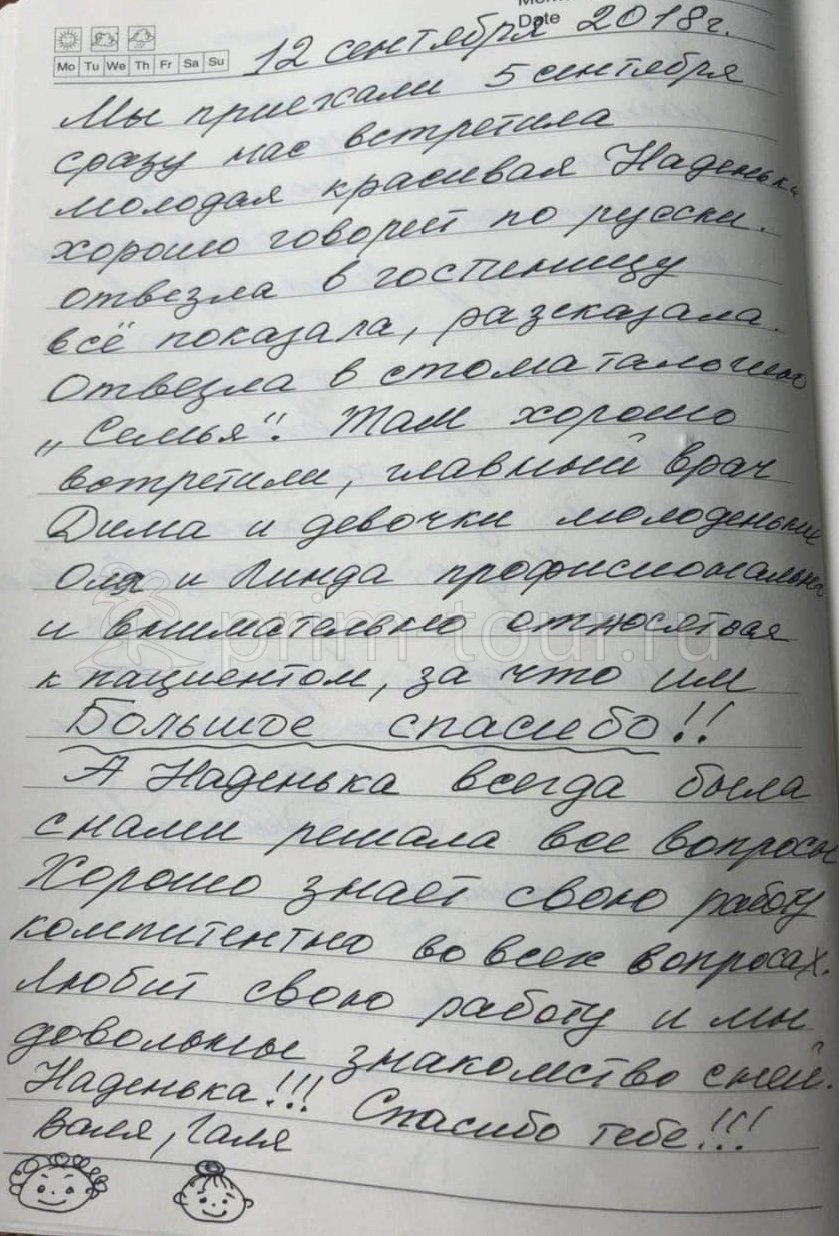 Date
Mo Tu We Th Fr Sa Su
12 сентября 2018г.
Мы приехали 5 сентября
сразу нас встретила
молодая красивая Наденька
хорошо говорет по русски.
отвезла в гостиницу
всё показала, разсказала.
Отвезла в стоматалогию
„Семья". Там хорошо
встретили, главный врач
Дима и девочки молоденькие
Оля и Линда профисионально
и внимательно относятвая
к пациентом, за что им
Большое спасибо!!
А Наденька всегда была
снами решала все вопросы
Хорошо знает свою работу
компитентно во всех вопросах.
Любит свою работу и мы
довольны знакомство сней.
Наденька!!! Спасибо тебе!!!
Валя, Галя
prim-tour.ru